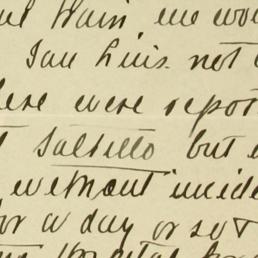 train, we wou
San Luis not
were report
Saltillo but
without incide
for a day or so &